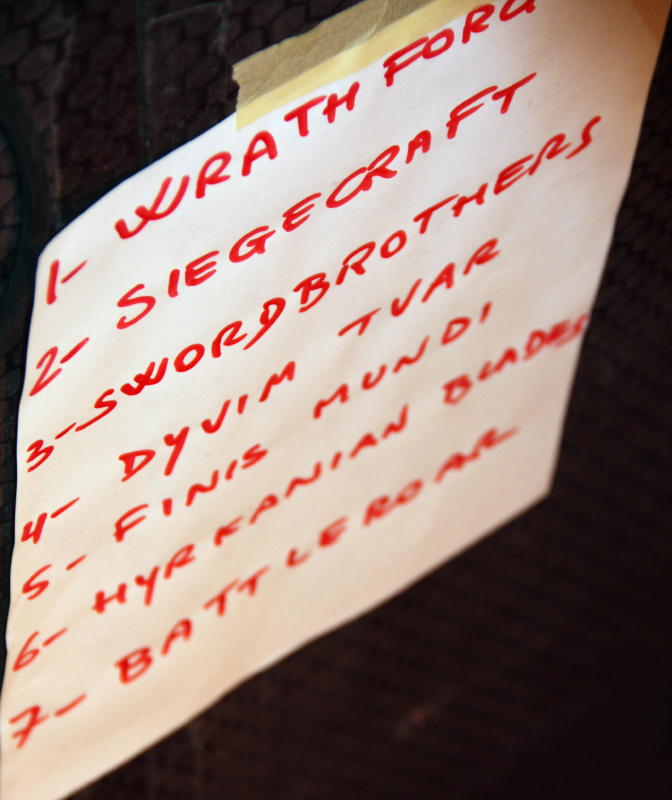 1- WRATH FORG
2- SIEGECRAFT
3- SWORDBROTHERS
4- DYVIM TVAR
5- FINIS MUNDI
6- HYRKANIAN BLADES
7- BATTLEROAR